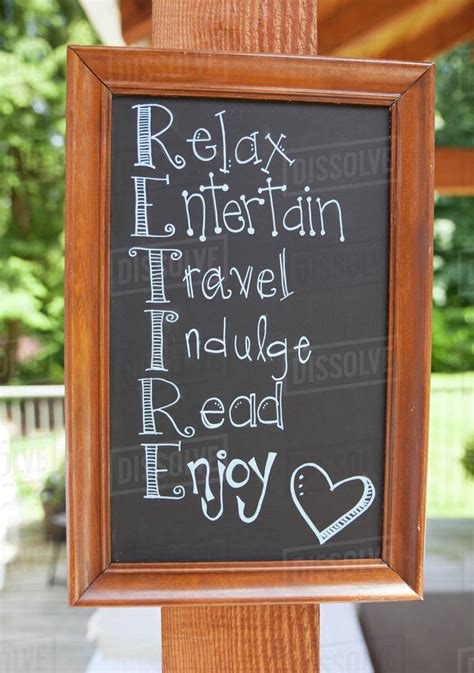 Relax
Entertain
Travel
Indulge
Read
Enjoy
DISSOLVE
DISSOLVE